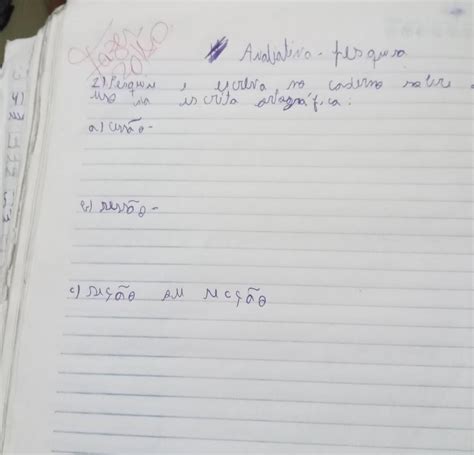 Avaliativo - pesquisa
2) Pesquise e escreva, no caderno sobre o
uso na escrita ortográfica:
a) cessão -
b) sessão -
c) seção ou secção